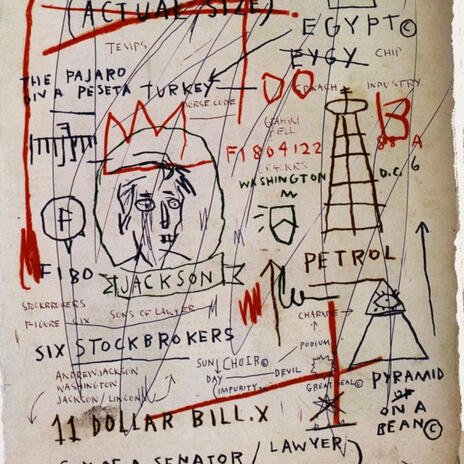 (ACTUAL SIZE)
EGYPT©
EYGY
CHIP
THE PAJARO
ON A PESETA
TURKEY
MORSE CODE
INDUSTRY
B
GRAHAM
BELL
F1804122
CRACKERS
88 A
D.C. 6
WASHINGTON
F
F180
JACKSON
PETROL
STOCKBROKERS
FIGURE SIX
SONS OF LAWYER
CHARADE
SIX STOCKBROKERS
PODIUM
ANDREW JACKSON
WASHINGTON
JACKSON / LINCON
SUN CHOIR©
DAY
DEVIL
IMPURITY
GREAT SEAL©
PYRAMID
OF
ON A
BEAN©
11 DOLLAR BILL.X
OF A SENATOR / LAWYER)